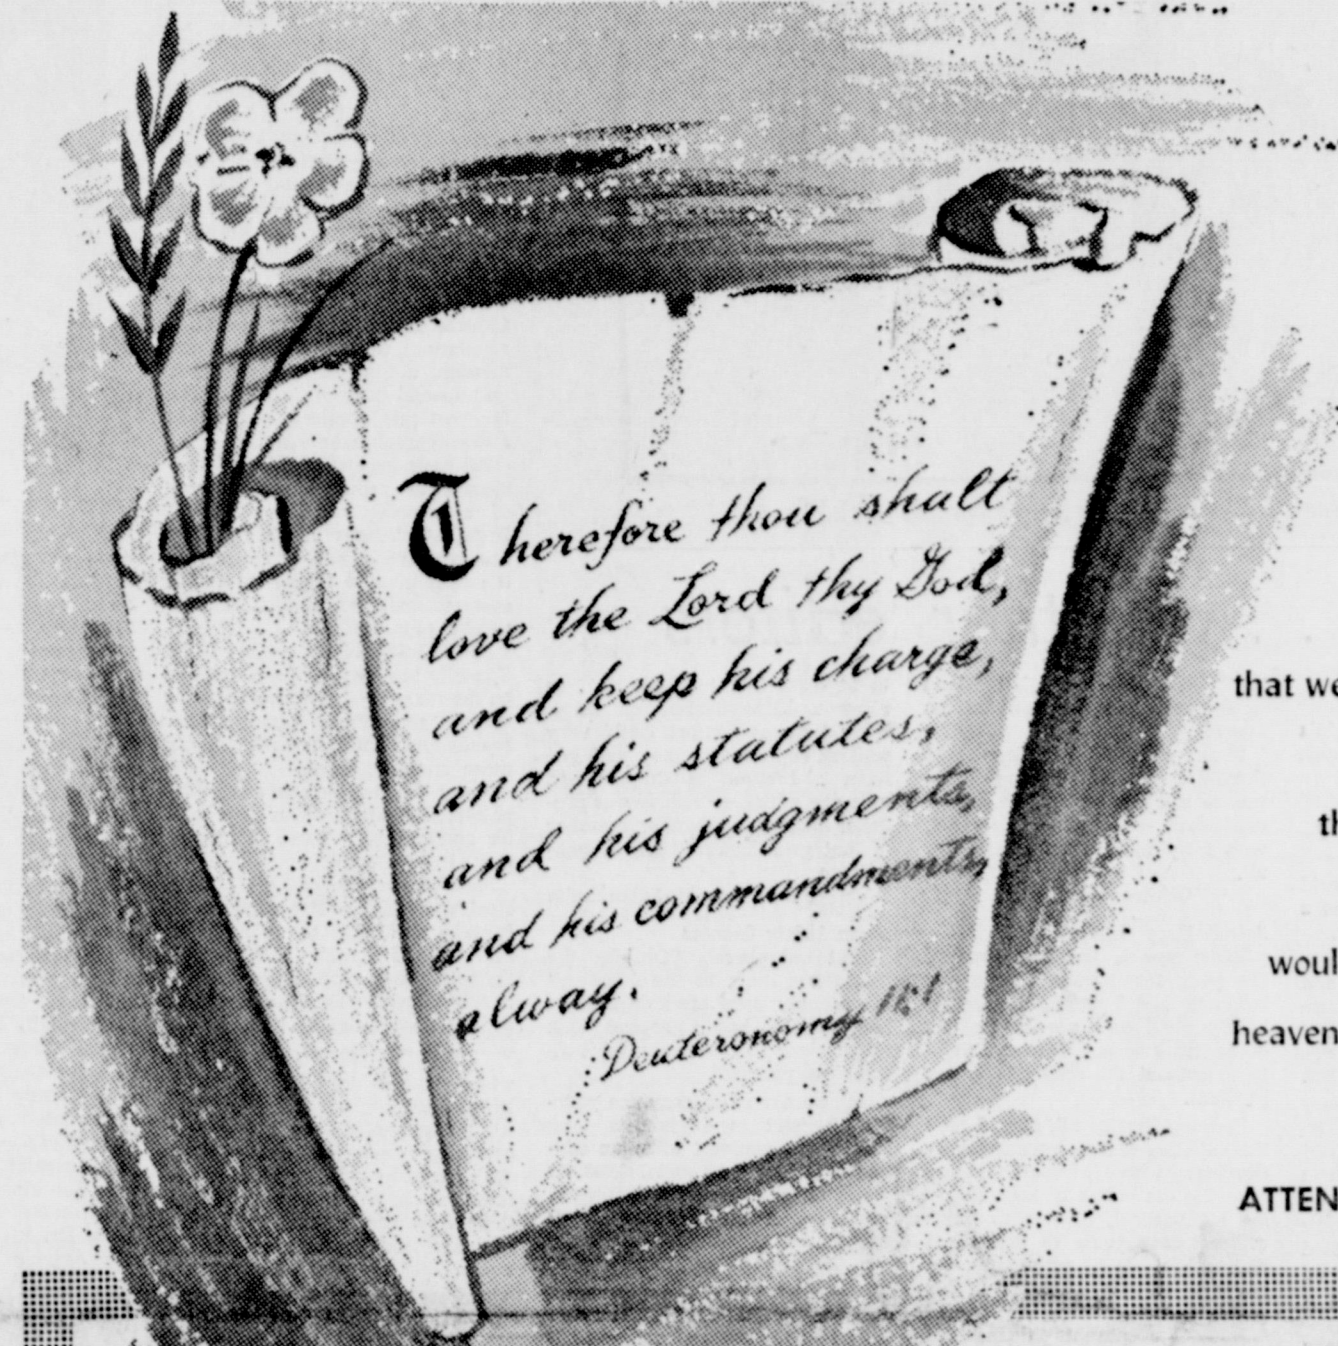 Therefore thou shalt
love the Lord thy God,
and keep his charge,
and his statutes,
and his judgments,
and his commandments,
alway.
Deuteronomy 11:1
that we
th
woul
heaven
ATTEN